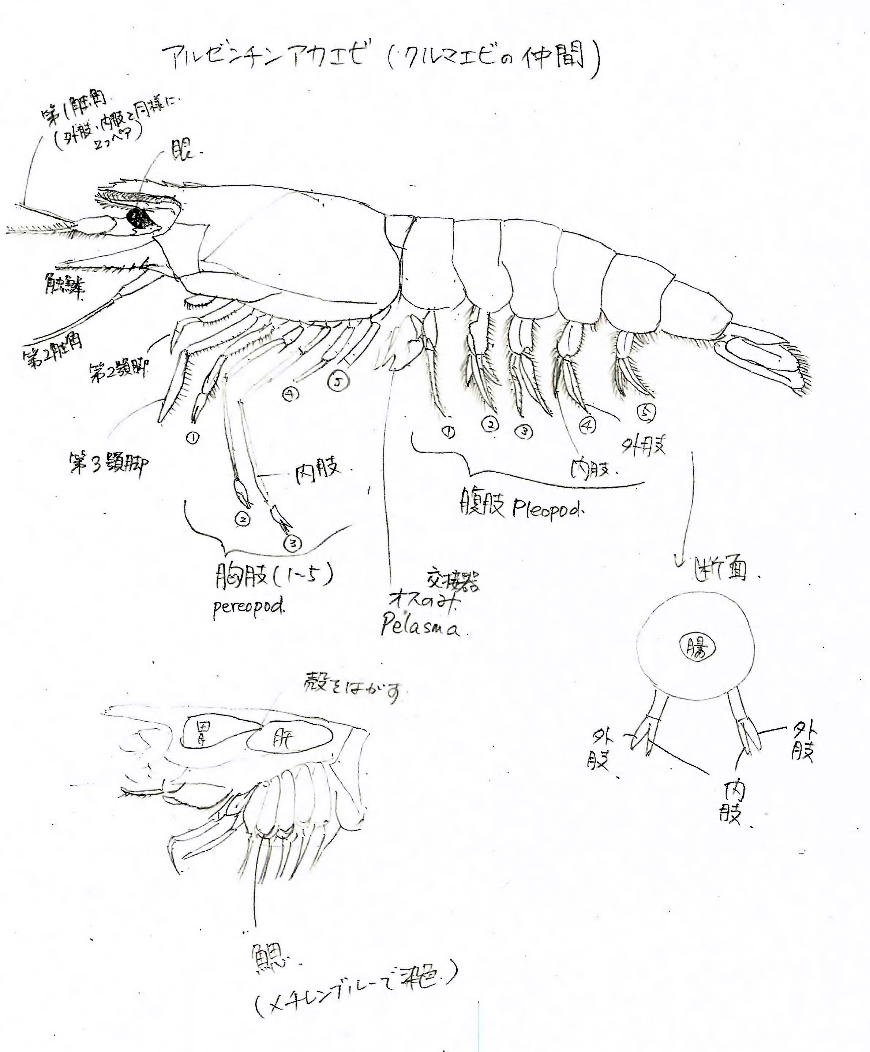 アルゼンチンアカエビ(クルマエビの仲間)
第1触角
(外肢・内肢と同様に
2つペア)
眼.
触鱗
第2触角
第2顎脚
第3顎脚
①
②
③
④
⑤
内肢.
胸肢(1~5)
pereopod.
交接器
オスのみ.
Pelasma.
①
②
③
④
⑤
外肢
内肢.
腹肢 Pleopod.
断面.
腸
外
肢.
外
肢
内
肢.
殻をはがす
胃
肝
鰓.
(メチレンブルーで染色.)